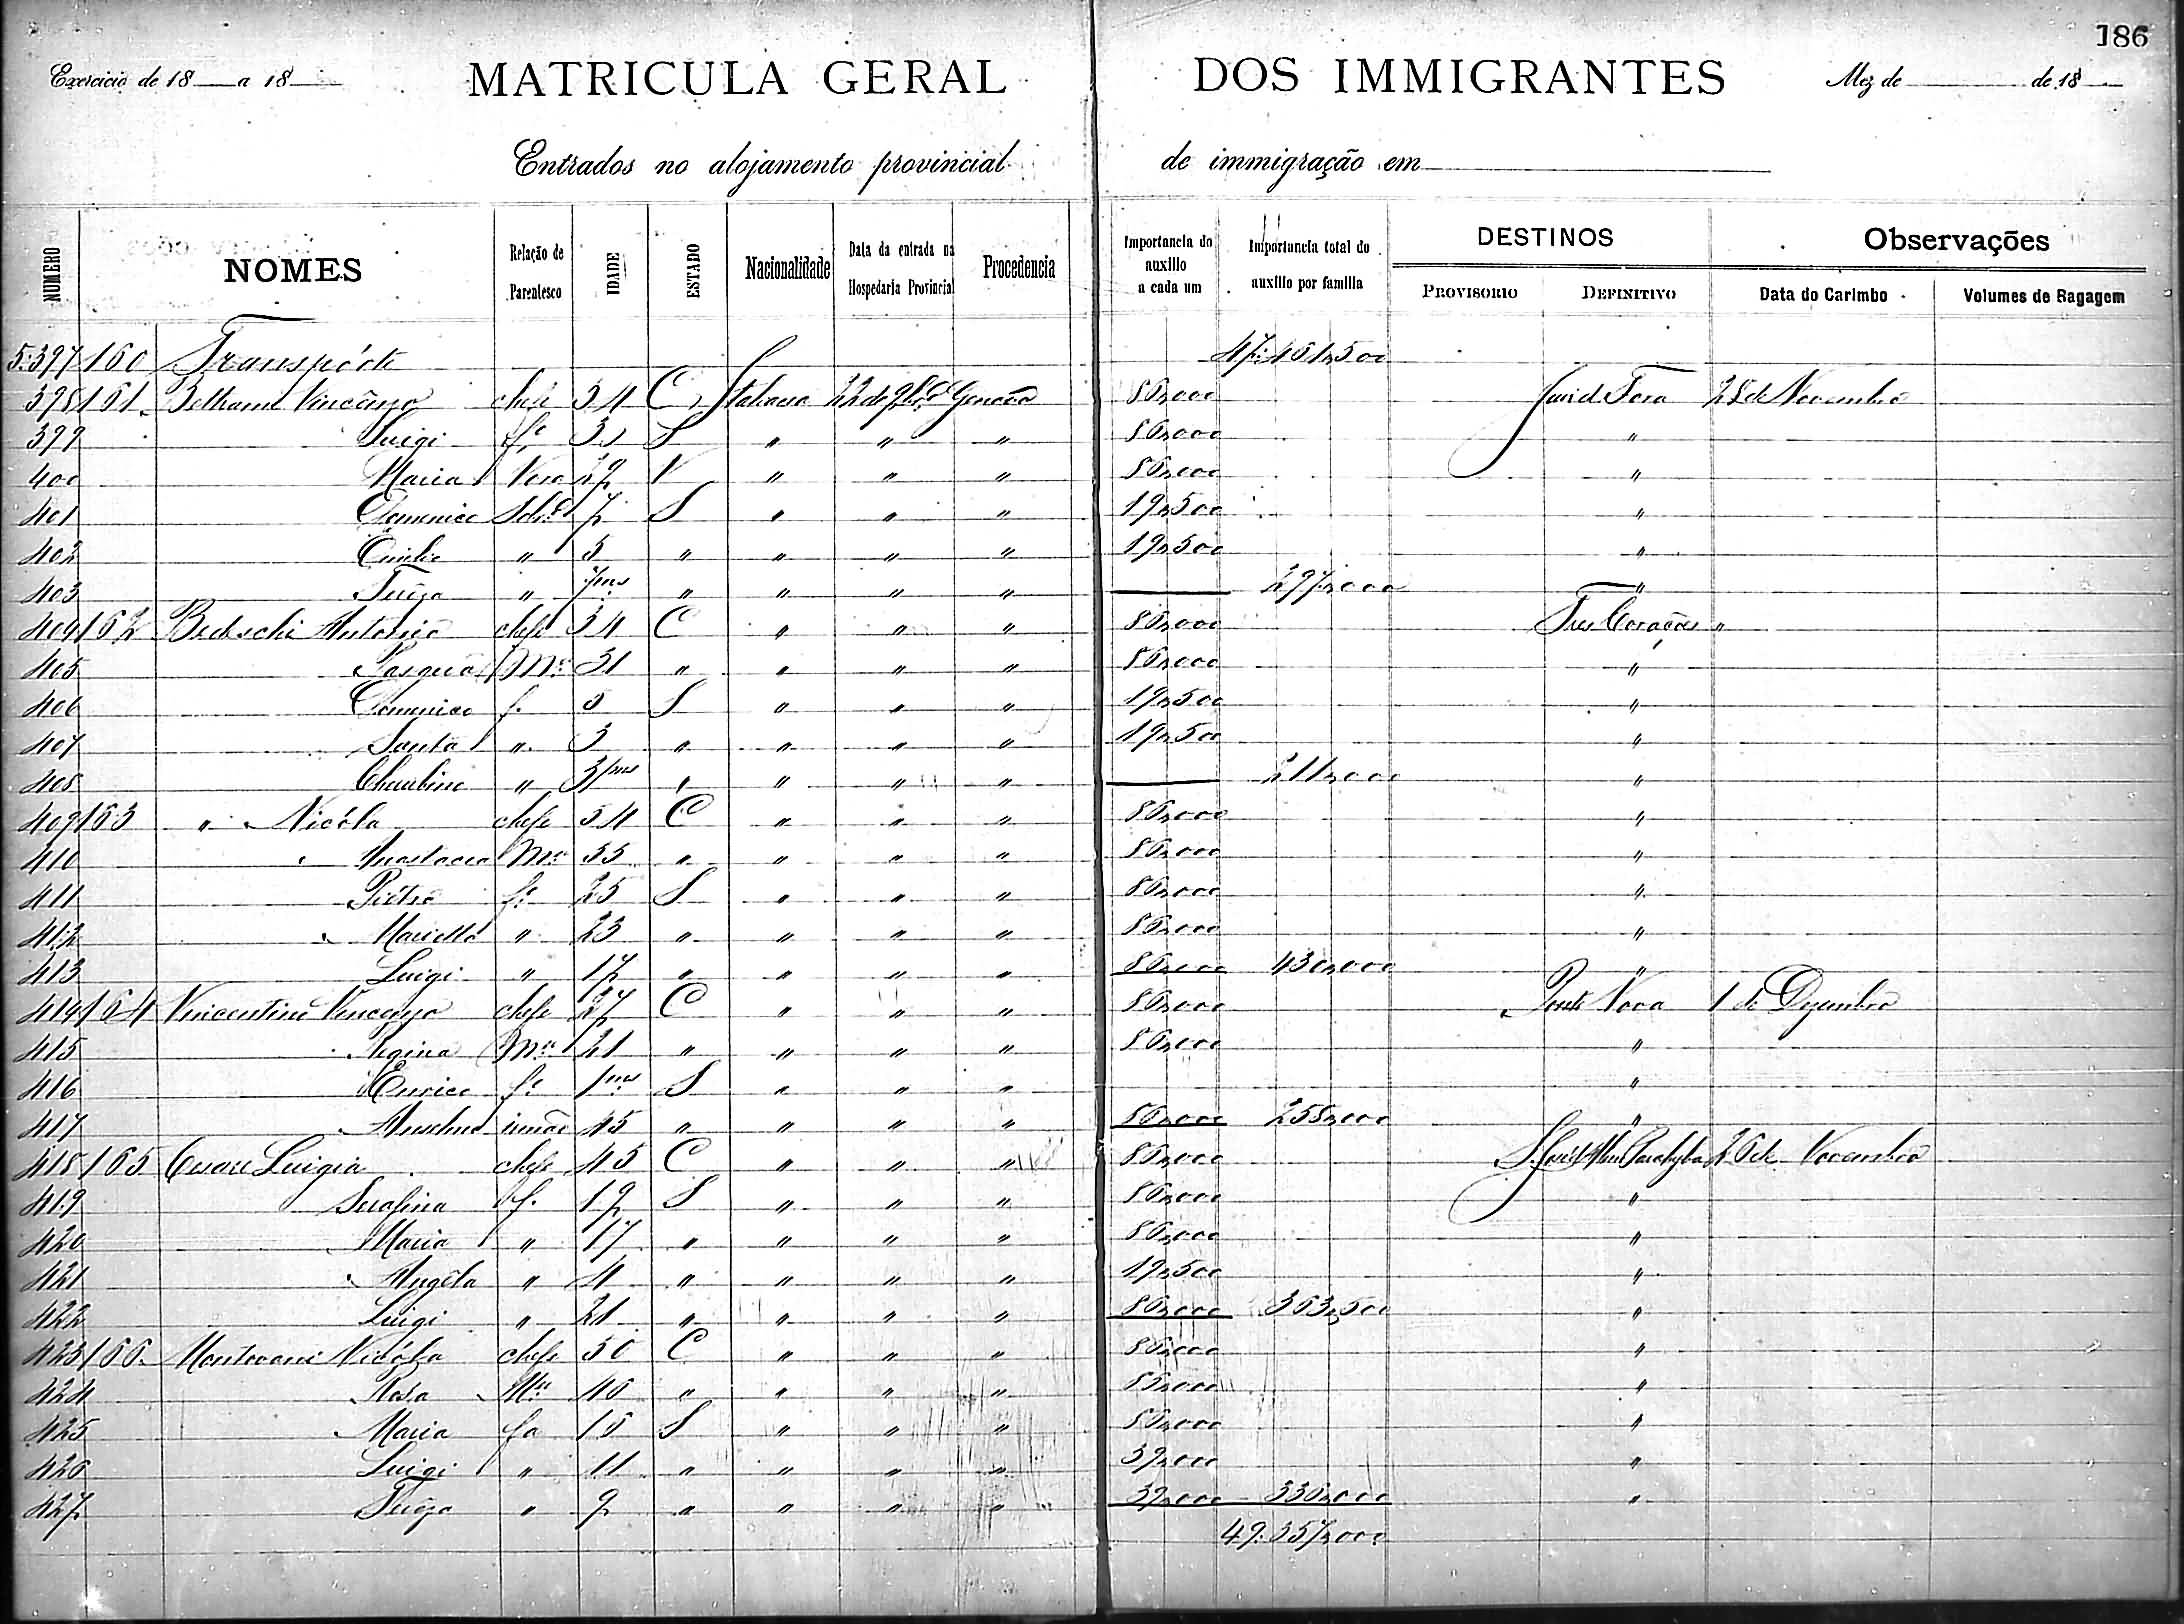 186
Exercicio de 18 a 18 MATRICULA GERAL DOS IMMIGRANTES Mez de de 18
Entrados no alojamento provincial de immigração em
NUMERO NOMES Relação de Parentesco IDADE ESTADO Nacionalidade Data da entrada na Hospedaria Provincial Procedencia Importancia do auxilio a cada um Importancia total do auxilio por familia DESTINOS PROVISORIO DEFINITIVO Observações Data do Carimbo Volumes de Bagagem
5.397 160 Transpórte 47:461$500
398 161 Beltrame chefe 34 C Italiana 22 de 9bro Genova 86$000 Juiz de Fora 28 de Novembro
399 Luigi S " " " 86$000 "
400 Maria V " " " 86$000 "
401 Domenico 7 S " " " 19$500 "
402 " 5 " " " " 19$500 "
403 " 7ms " " " " 297$000 "
404 162 Bedeschi Antonio chefe 34 C " " " 86$000 Tres Corações "
405 Pasqua Mer 31 " " " " 86$000 "
406 Domenico f. 5 S " " " 19$500 "
407 Santa " 3 " " " " 19$500 "
408 " 3ms " " " " 211$000 "
409 163 " Nicóla chefe 54 C " " " 86$000 "
410 Anastacia Mer 55 " " " " 86$000 "
411 Piétro fo 25 S " " " 86$000 "
412 Marietta " 23 " " " " 86$000 "
413 Luigi " 17 " " " " 86$000 430$000 "
414 164 Vincentine Vincenzo chefe 27 C " " " 86$000 Ponte Nova 1 de Dezembro
415 Regina Mer 21 " " " " 86$000 "
416 Enrico fo 1ms S " " " "
417 Anselmo irmão 15 " " " " 86$000 258$000 "
418 165 Luigia chefe 45 C " " " 86$000 26 de Novembro
419 Serafina f. 19 S " " " 86$000 "
420 Maria " 17 " " " " 86$000 "
421 Angéla " 4 " " " " 19$500 "
422 Luigi " 21 " " " " 86$000 363$500 "
423 166 Mantovani Nicóla chefe 50 C " " " 86$000 "
424 Rosa Mer 46 " " " " 86$000 "
425 Maria fa 16 S " " " 86$000 "
426 Luigi " 11 " " " " 39$000 "
427 " 9 " " " " 39$000 336$000 "
49:357$000